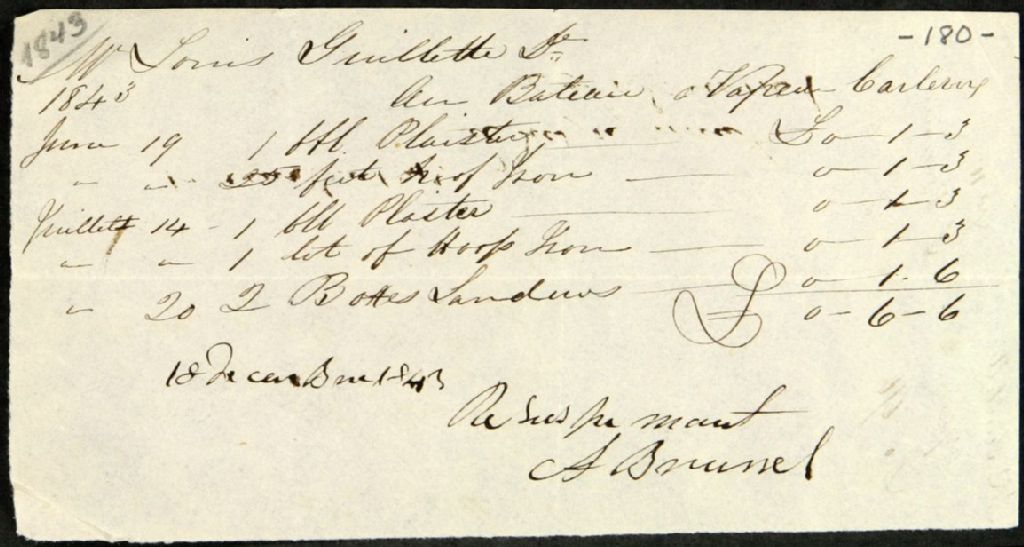 1843
- 180 -
Mr Louis Guillette Dr
1843 Au Bateau a Vapeur
June 19 1 bbl Plaister £ 0 - 1 - 3
" " feet Hoop Iron 0 - 1 - 3
Juillett 14 - 1 bbl Plaister 0 - 1 - 3
" " 1 lot of Hoop Iron 0 - 1 - 3
" 20 2 0 - 1 - 6
£ 0 - 6 - 6
18 1843
A Brunel